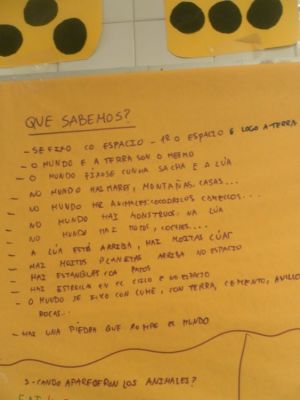 QUE SABEMOS?
- SE FIXO CO ESPACIO - 1º O ESPACIO E LOGO A TERRA
- O MUNDO E A TERRA SON O MESMO
- O MUNDO FIXOSE CUNHA SACHA E A LÚA
- NO MUNDO HAI MARES, MONTAÑAS, CASAS...
- NO MUNDO HAI ANIMALES: COCODRILOS CAMELLOS...
- NO MUNDO HAI MONSTRUOS. NA LÚA
- NO MUNDO HAI MOTOS, COCHES...
- A LÚA ESTÁ ARRIBA, HAI MOITAS LÚAS
- HAI MOITOS PLANETAS ARRIBA NO ESPACIO
- HAI ESTANQUES CON PATOS
- HAI ESTRELLA EN EL CIELO E NO ESPACIO
- O MUNDO SE FIXO CON LUME, CON TERRA, CEMENTO,
ROCAS...
- HAI UNA PIEDRA QUE ROMPE EL MUNDO
3- CANDO APARECERON LOS ANIMALES?